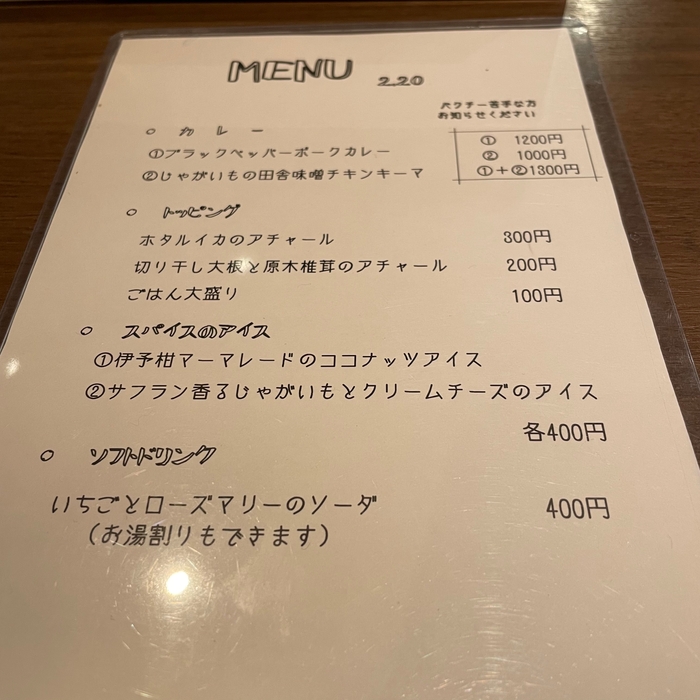 MENU 2.20
パクチー苦手な方
お知らせください
○ カレー
①ブラックペッパーポークカレー ① 1200円
② 1000円
②じゃがいもの田舎味噌チキンキーマ ①+②1300円
○ トッピング
ホタルイカのアチャール 300円
切り干し大根と原木椎茸のアチャール 200円
ごはん大盛り 100円
○ スパイスのアイス
①伊予柑マーマレードのココナッツアイス
②サフラン香るじゃがいもとクリームチーズのアイス
各400円
○ ソフトドリンク
いちごとローズマリーのソーダ 400円
(お湯割りもできます)